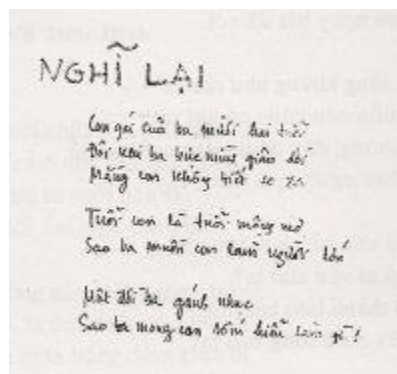 NGHĨ LẠI
Con gái của ba mười hai tuổi
Đôi khi ba bực mình giận dỗi
Mắng con không biết lo xa
Tuổi con là tuổi mộng mơ
Sao ba muốn con làm người lớn
Một đời ba gánh nhọc
Sao ba mong con sớm hiểu làm gì!